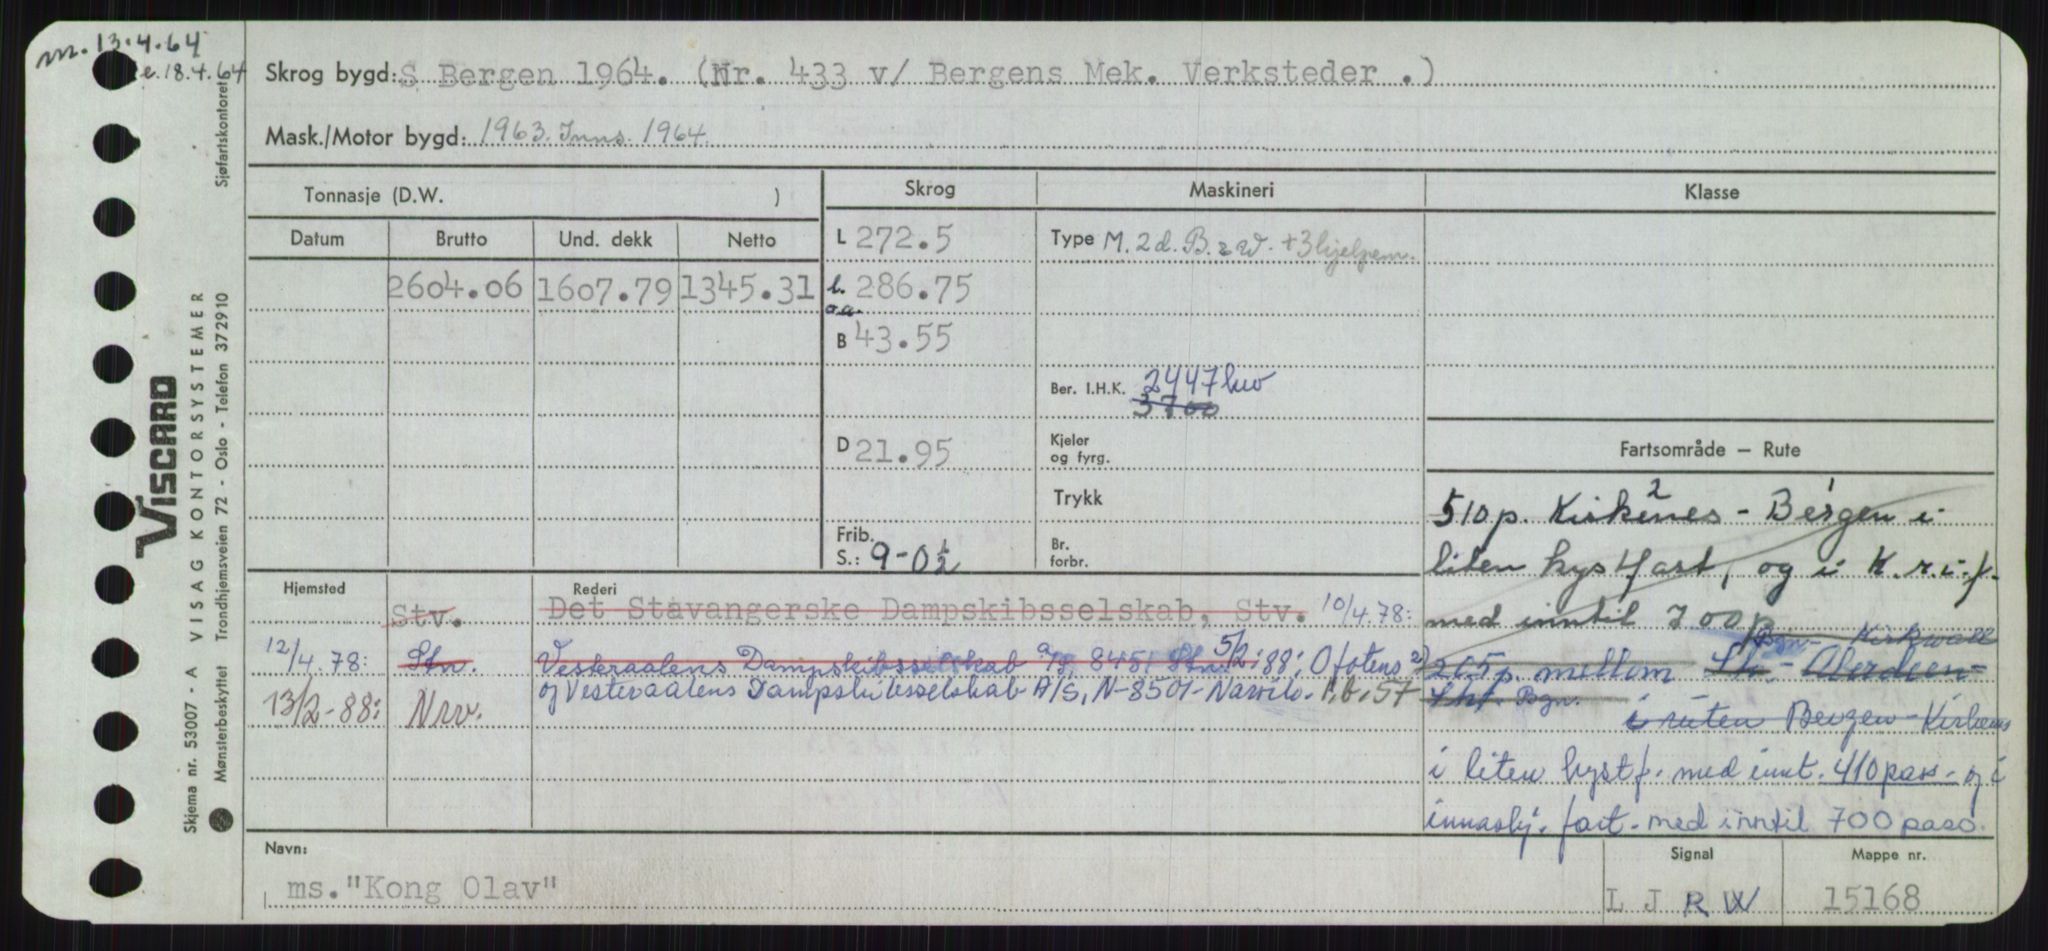 m. 13.4.64
e. 18.4.64
Sjøfartskontoret
Skrog bygd: S Bergen 1964. (Nr. 433 v/ Bergens Mek. Verksteder .)
Mask./Motor bygd: 1963. Inns. 1964.
Tonnasje (D.W. )
Skrog
Maskineri
Klasse
Datum
Brutto
Und. dekk
Netto
2604.06
1607.79
1345.31
L 272.5
l. oa. 286.75
B 43.55
D 21.95
Frib.
S.: 9-0½
Type M. 2 d. B & W. +3 hjelpem.
Ber. I.H.K. 2447 kw
3700
Kjeler
og fyrg.
Trykk
Br.
forbr.
Fartsområde — Rute
510 p. Kirkenes - Bergen i
2 1
liten kystfart, og i K.r.i.f.
med inntil 700 p
Bgn - Kirkwall
2) 265 p. mellom - Aberdeen -
Bgn.
i ruten Bergen - Kirkenes
i liten kystf. med innt. 410 pass. og i
innaskj. fart. med inntil 700 pass.
Hjemsted
Rederi
Stv.
Det Stavangerske Dampskibsselskab, Stv. 10/4.78:
12/4.78: Stn.
Vesteraalens Dampskibsselskab a/s, 8451 Stn. 5/2-88: Ofotens
og Vesteraalens Dampskibsselskab A/S, N-8501- Narvik.
13/2-88: Nrv.
Navn:
ms."Kong Olav"
Signal
L J R W
Mappe nr.
15168
VISCARD
Skjema nr. 53007 - A VISAG KONTORSYSTEMER
Mønsterbeskyttet Trondhjemsveien 72 - Oslo - Telefon 372910